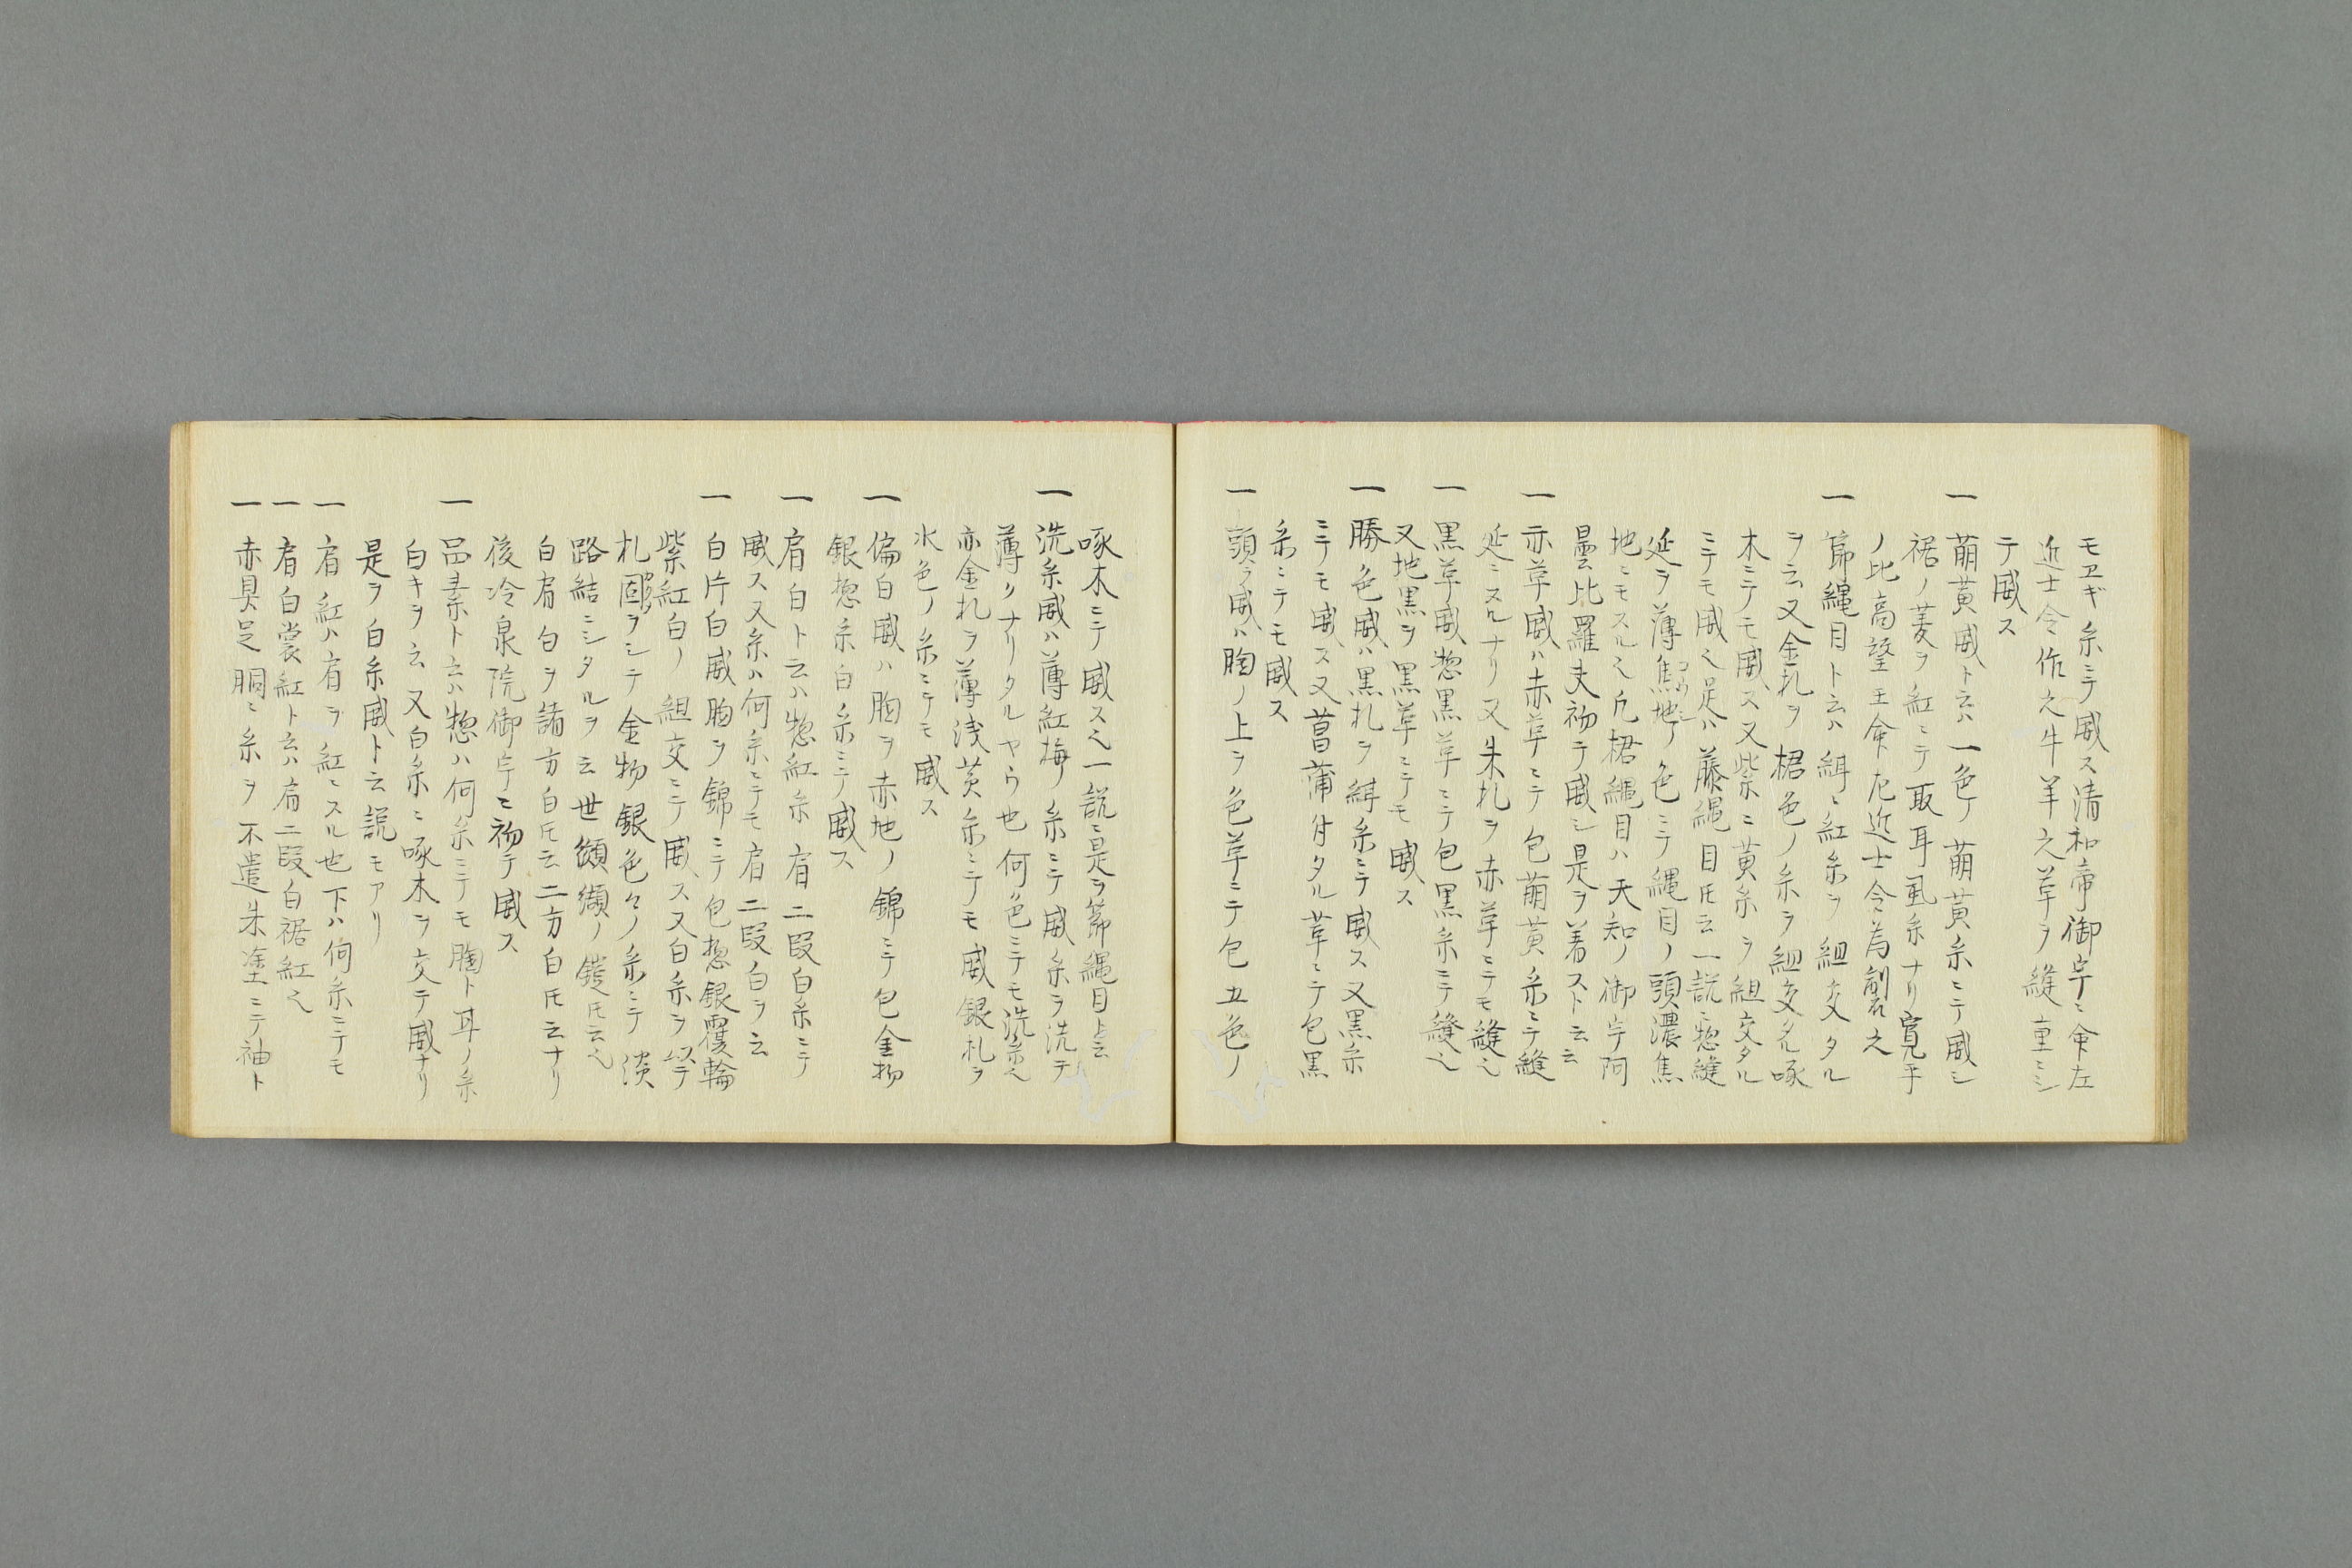 モヱギ糸ニテ威ス清和帝御宇ニ命左
近士令作之牛羊之革ヲ縫重ニシ
テ威ス
一 萌黄威ト云ハ一色ノ萌黄糸ニテ威シ
裾ノ菱ヲ紅ニテ取耳虱糸ナリ寛平
ノ比高望王命左近士令為制之
一 節縄目ト云ハ緝ニ紅糸ヲ組交タル
ヲ云又金札ヲ裙色ノ糸ヲ組交タル啄
木ニテモ威ス又紫ニ黄糸ヲ組交タル
ニテモ威也是ハ藤縄目氏云一説ニ惣縫
延ヲ薄焦地ノ色ニテ縄目ノ頭濃焦
地ニモスル也凡裙縄目ハ天知ノ御宇阿
曇比羅夫初テ威シ是ヲ着スト云云
一 赤革威ハ赤革ニテ包萌黄糸ニテ縫
延ニスルナリ又朱札ヲ赤革ニテモ縫也
一 黒革威惣黒革ニテ包黒糸ニテ縫也
又地黒ヲ黒革ニテモ威ス
一 勝色威ハ黒札ヲ緝糸ニテ威ス又黒糸
ニテモ威ス又菖蒲付タル革ニテ包黒
糸ニテモ威ス
一 頭ヲ威ハ胸ノ上ヲ色革ニテ包五色ノ
啄木ニテ威ス也一説ニ是ヲ節縄目ト云
一 洗糸威ハ薄紅梅ノ糸ニテ威糸ヲ洗テ
薄クナリタルヤウ也何色ニテモ洗糸也
亦金札ヲ薄浅黄糸ニテモ威銀札ヲ
水色ノ糸ニテモ威ス
一 偏白威ハ胸ヲ赤地ノ錦ニテ包金物
銀惣糸白糸ニテ威ス
一 肩白ト云ハ惣紅糸肩二段白糸ニテ
威ス又糸ハ何糸ニテモ肩二段白ヲ云
一 白片白威胸ヲ錦ニテ包惣銀覆輪
紫紅白ノ組交ニテ威ス又白糸ヲ以テ
札固ヲシテ金物銀色々ノ糸ニテ淡
路結ニシタルヲ云世纐纈ノ鎧氏云也
白肩白ヲ諸方白氏云二方白氏云ナリ
後冷泉院御宇ニ初テ威ス
一 品素ト云ハ惣ハ何糸ニテモ胸ト耳ノ糸
白キヲ云又白糸ニ啄木ヲ交テ威ナリ
是ヲ白糸威ト云説モアリ
一 肩紅ハ肩ヲ紅ニスル也下ハ何糸ニテモ
一 肩白裳紅ト云ハ肩二段白裾紅也
一 赤具足胴ニ糸ヲ不遣朱塗ニテ袖ト